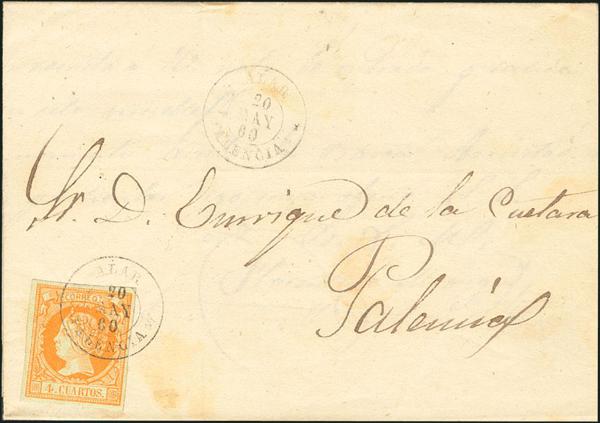 ALAR
20
MAY
60
PALENCIA
Sr. D. Enrrique de la Cuetara
Palencia
ALAR
20
MAY
60
PALENCIA
CORREOS
4 CUARTOS.